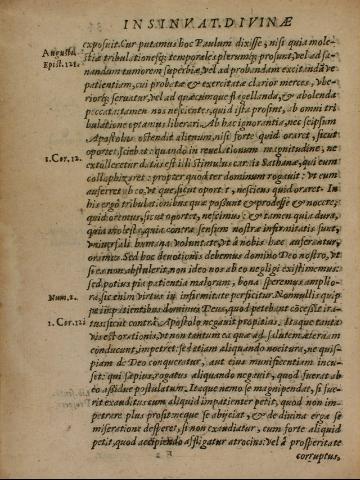 INSINVAT. DIVINÆ
exposuit. Cur putamus hoc Paulum dixisse, nisi quia mole-
Augustꝰ
Epist. 121.
stiæ tribulationesq; temporales plerumq; prosunt, vel ad sa-
nandum tumorem superbiæ, vel ad probandam excitandáve
patientiam, cui probatæ & exercitatæ clarior merces, vbe-
riorq; seruatur, vel ad quæcunque flagellanda, & abolenda
peccata: tamen nos nescientes, quid ista prosint, ab omni tri-
bulatione optamus liberari. Ab hac ignorantia, nec seipsum
Apostolus ostendit alienum, nisi forte quid oraret, sicut
1. Cor. 12.
oportet, sciebat: quando in reuelationum magnitudine, ne
extolleretur datus est illi stimulus carnis Sathanæ, qui eum
collaphizaret: propter quod ter dominum rogauit: vt eum
auferret ab eo, vt quæ, sicut oportet, nesciens quid oraret. In
his ergo tribulationibus quæ possunt & prodesse & nocere,
quid oremus, sicut oportet, nescimus: & tamen quia dura,
quia molesta, quia contra sensum nostræ infirmitatis sunt,
vniuersali humana voluntate, vt à nobis hæc auferantur,
oramus. Sed hoc deuotionis debemus domino Deo nostro, vt
si ea non abstulerit, non ideo nos ab eo negligi existimemus:
sed potius pia patientia malorum, bona speremus amplio-
Num. 2.
ra, sic enim virtus in infirmitate perficitur. Nonnullis quip-
pe impatientibus dominus Deus, quod petebant cōcessit ira-
1. Cor. 12
tus, sicut contrà Apostolo negauit propitius. Itaque tanta
vis est orationis, vt non tantum ea quæ ad salutem æternam
conducunt, impetret: sed etiam aliquando nocitura, ne quis-
piam de Deo conqueratur, aut eius munificentiam incu-
set: qui sæpius rogatus aliquando negauit, quod fuerat ab
eo assidue postulatum. Itaque nemo se magnipendat, si fue-
rit exauditus cum aliquid impatienter petit, quod non im-
petrare plus prosit: neque se abijciat, & de diuina erga se
miseratione desperet, si non exaudiatur, cum forte aliquid
petit, quod accipiendo affligatur atrocius: vel à prosperitate
corruptus,